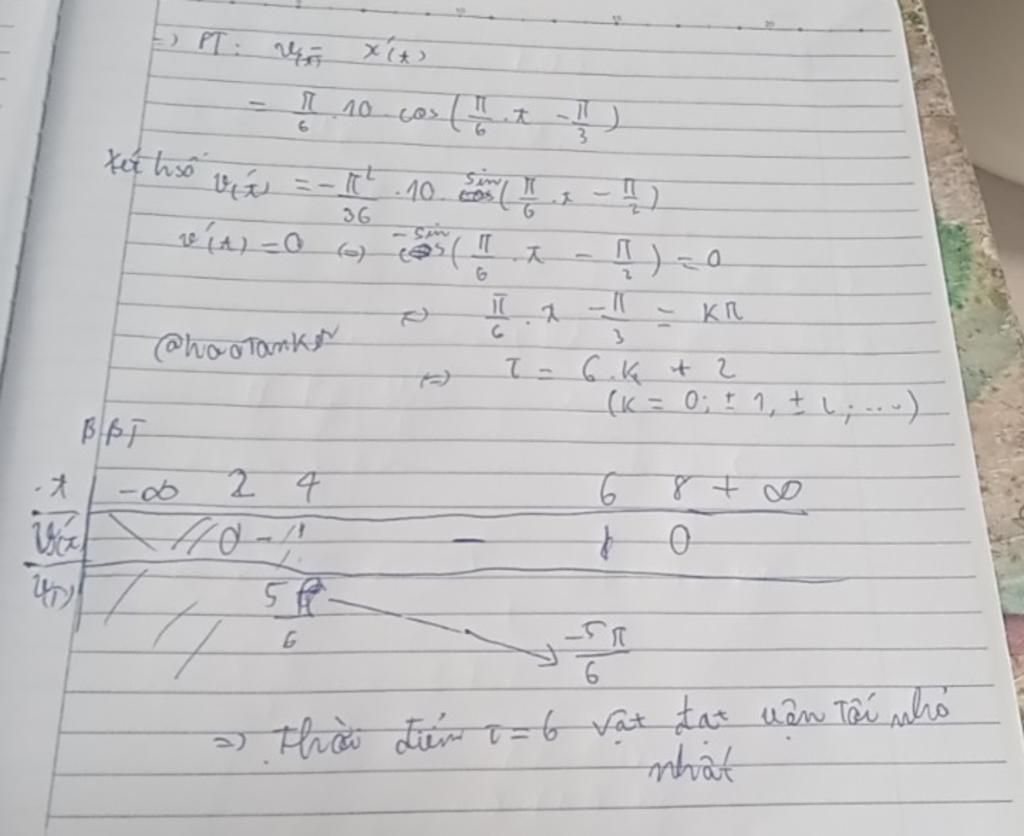 => PT: v(t) = x'(t)
= π/6 . 10 . cos(π/6 . t - π/3)
Xét h số v'(t) = -π²/36 . 10 . sin(π/6 . t - π/2)
v'(t) = 0 (=) -sin(π/6 . t - π/2) = 0
(=) π/6 . t - π/3 = Kπ
@haoTank
(=) t = 6.k + 2
(K = 0; ±1, ±2; ...)
BBT
t -∞ 2 4 6 8 +∞
v'(t) 0 - - 0
v(t) 5π/6
-5π/6
=> Thời điểm t = 6 vật đạt vận tối nhỏ
nhất